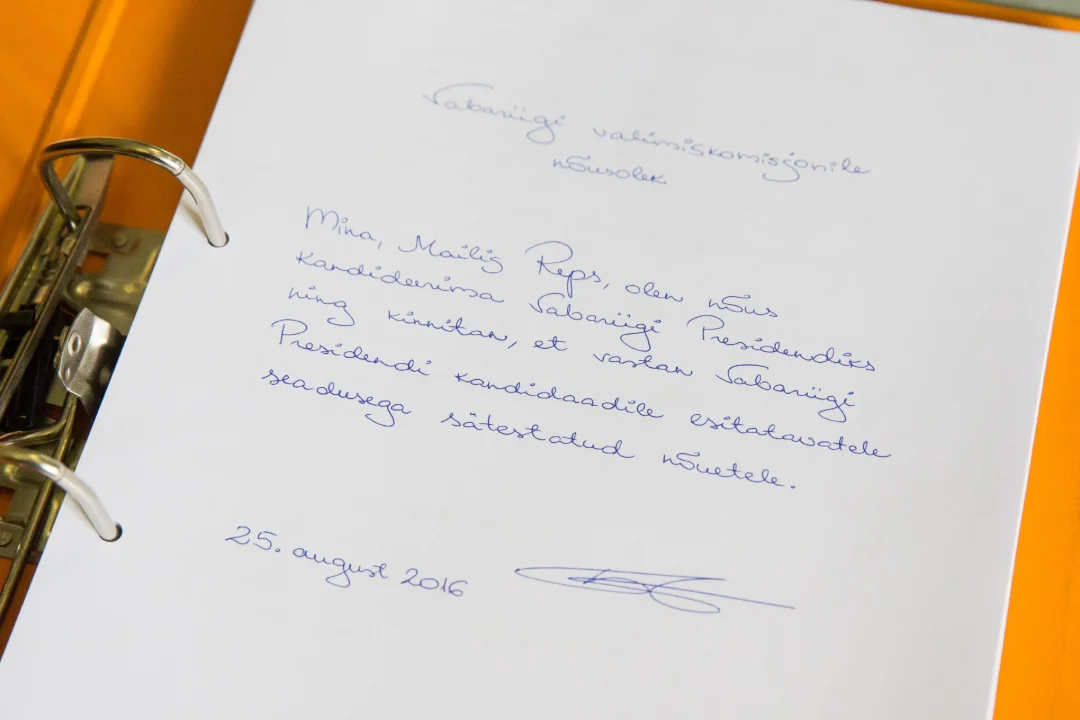 Vabariigi valimiskomisjonile
nõusolek
Mina, Mailis Reps, olen nõus
kandideerima Vabariigi Presidendiks
ning kinnitan, et vastan Vabariigi
Presidendi kandidaadile esitatavatele
seadusega sätestatud nõuetele.
25. august 2016